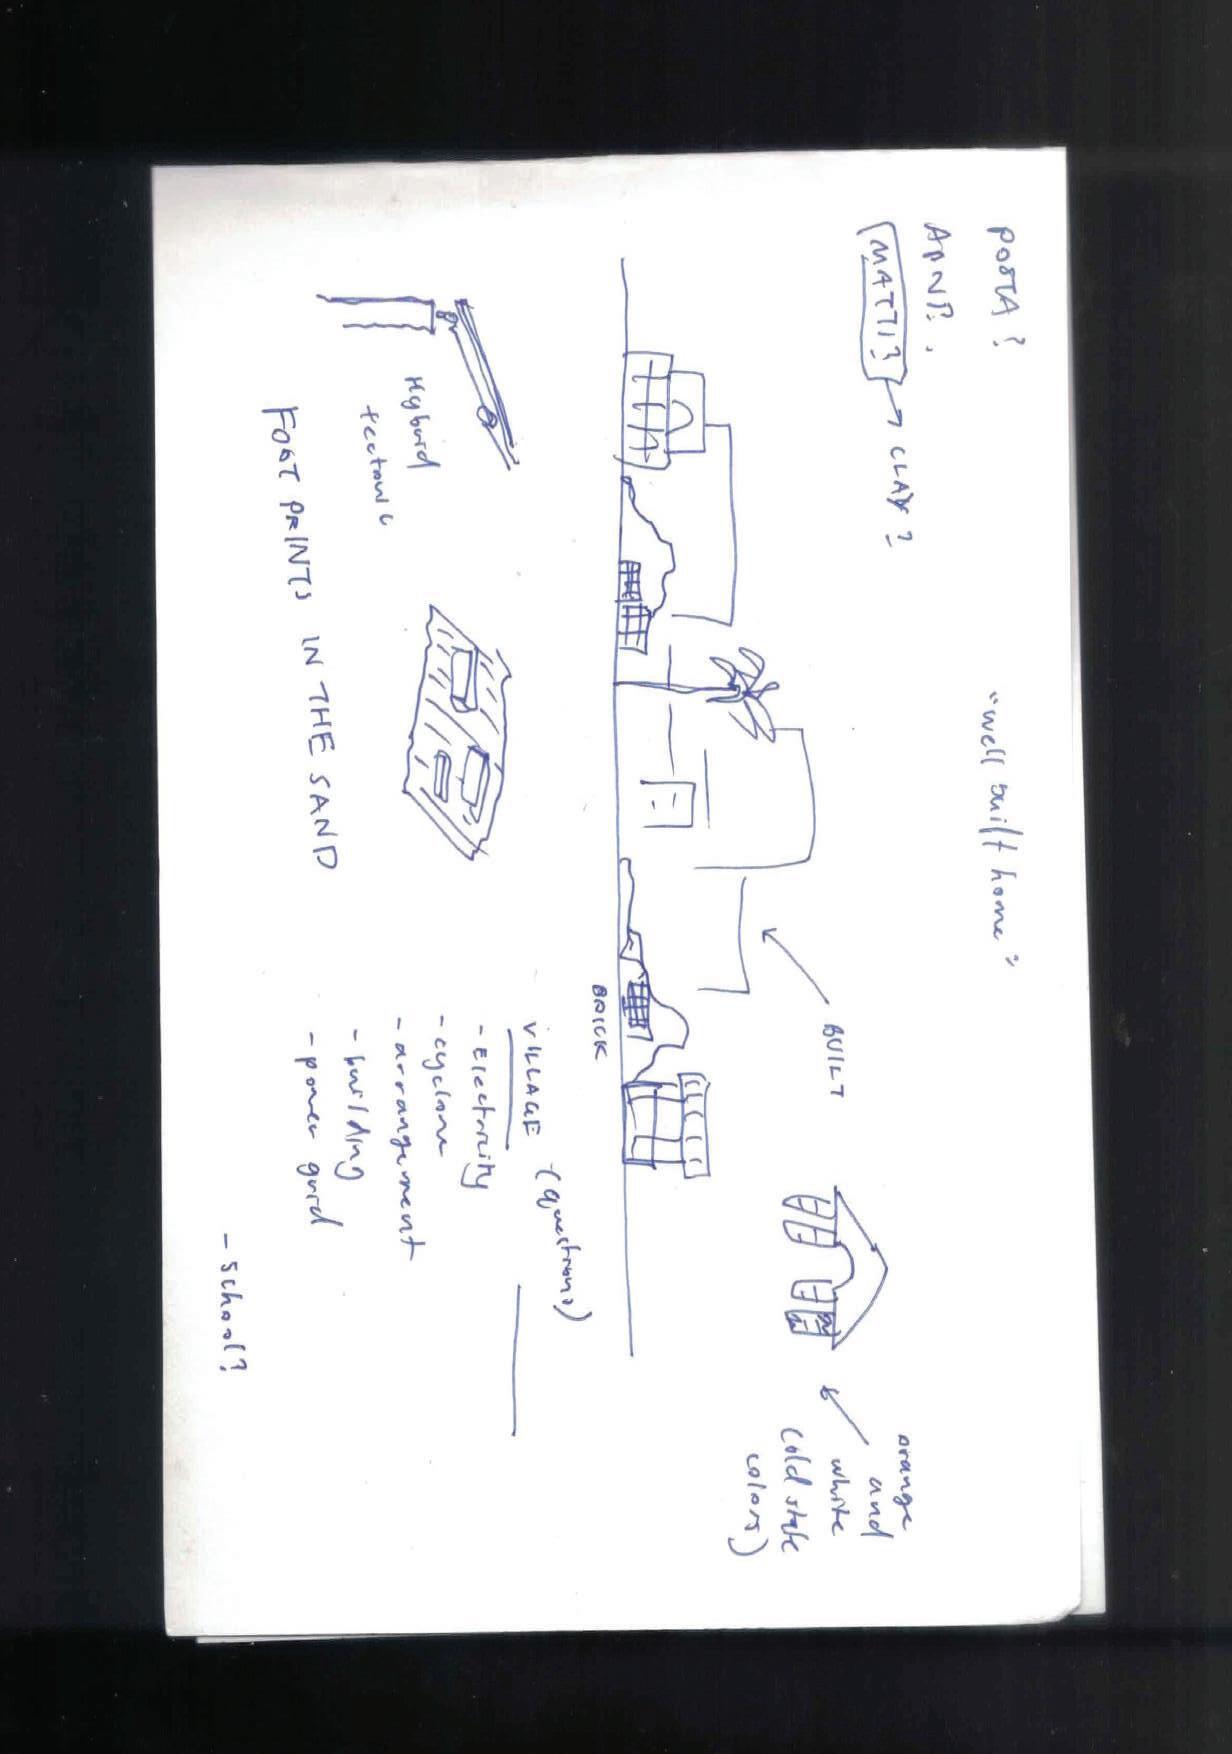 POSTA?
APNP.,
MATTI?
CLAY?
"well built home"
BUILT
orange
and
white
(old state
colors)
BRICK
VILLAGE (questions)
- Electricity
- cyclone
- arrangement
- building
- power guird
- School?
Hyburid
tectonic
FOOT PRINTS IN THE SAND